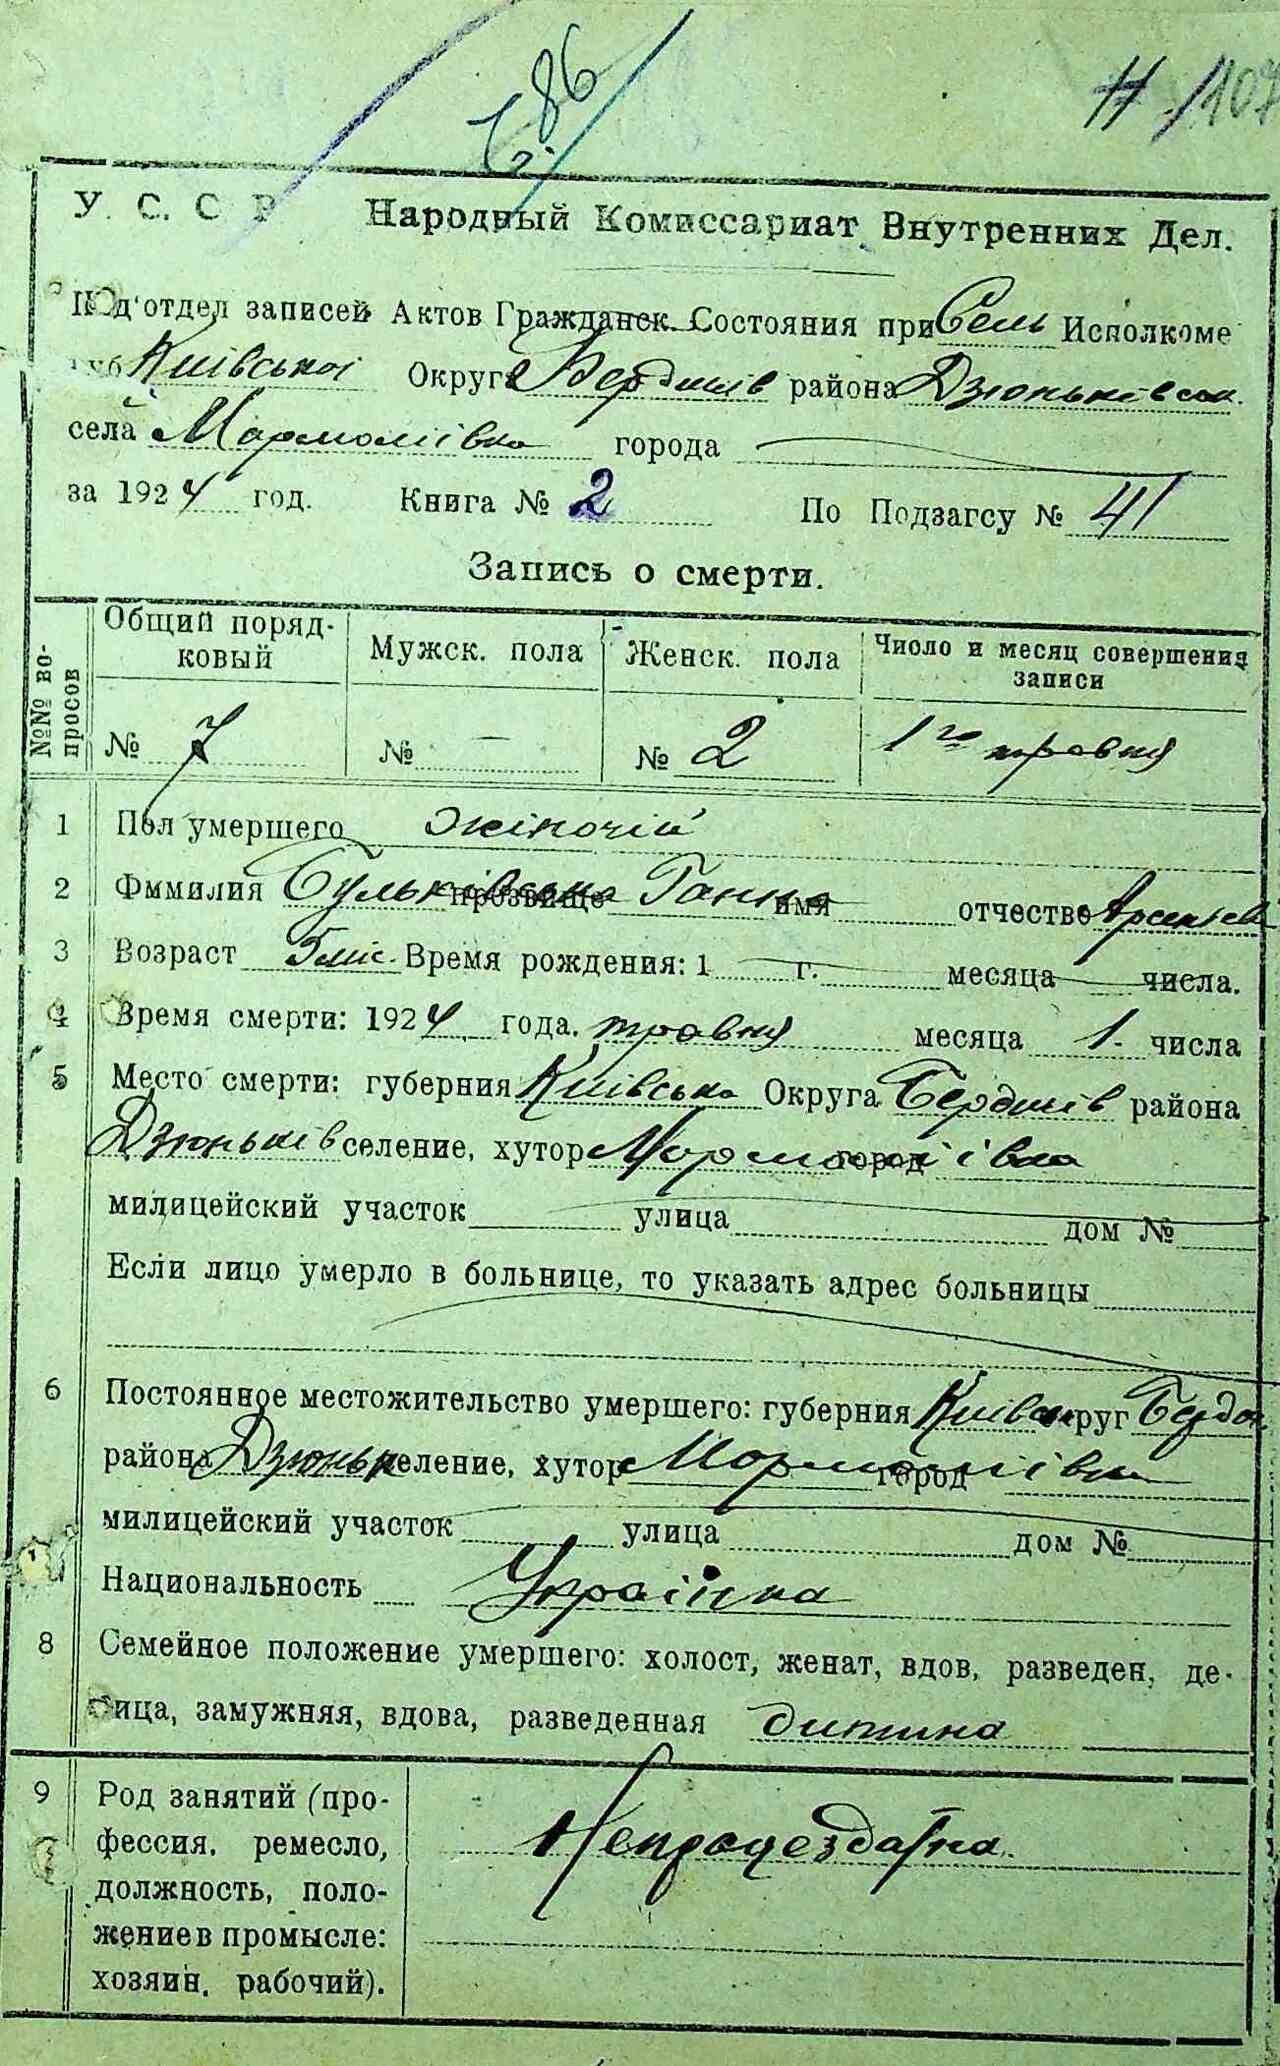 86
107
У. С. С Р Народный Комиссариат Внутренних Дел.
Под'отдел записей Актов Гражданск. Состояния при Сель Исполкоме
губ Київської Округа Бердичів района Дзюньківськ.
села Мармоліївка города
за 1924 год. Книга № 2 По Подзагсу № 41
Запись о смерти.
№№ вопросов
Общий поряд-
ковый
Мужск. пола Женск. пола Число и месяц совершения
записи
№ 7 № — № 2 1го травня
1 Пол умершего жіночій
2 Фммилия Бульківська прозвище Ганна имя отчество Арсеньев
3 Возраст 5 міс. Время рождения: 1 г. месяца числа.
4 Время смерти: 1924 года. травня месяца 1. числа
5 Место смерти: губерния Київська Округа Бердичів района
Дзюньків селение, хутор Мармоліївка город
милицейский участок улица дом №
Если лицо умерло в больнице, то указать адрес больницы
6 Постоянное местожительство умершего: губерния Київськ округ Бердич
района Дзюньк селение, хутор Мармоліївка город
милицейский участок улица дом №
Национальность Українка
8 Семейное положение умершего: холост, женат, вдов, разведен, де-
вица, замужняя, вдова, разведенная дитина
9 Род занятий (про-
фессия, ремесло,
должность, поло-
жение в промысле:
хозяин, рабочий).
Непрацездатна.